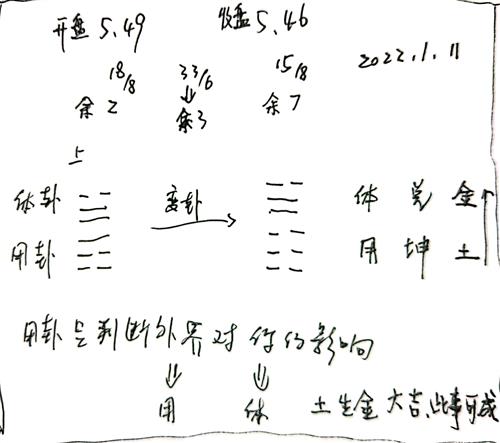 开盘 5.49 收盘 5.46
18/8 33/6 15/8 2022.1.11
余2 余3 余7
上
体卦 变卦 体 兑 金
用卦 用 坤 土
用卦是判断外界对你的影响
用 体 土生金 大吉,此事可成